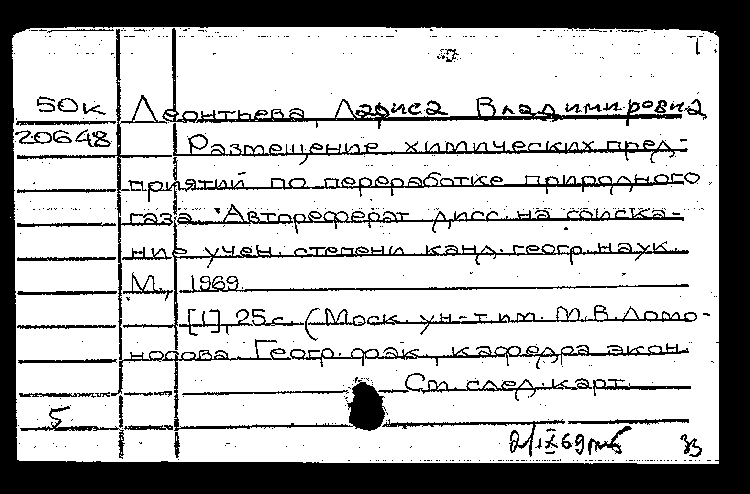 50к Леонтьева, Лариса Владимировна
20648 Размещение химических пред-
приятий по переработке природного
газа. Автореферат дисс. на соиска-
ние учен. степени канд. геогр. наук.
М., 1969.
[1], 25 с. (Моск. ун-т им. М. В. Ломо-
носова. Геогр. фак., кафедра экон.
См. след. карт.
5
2/IX 69 33